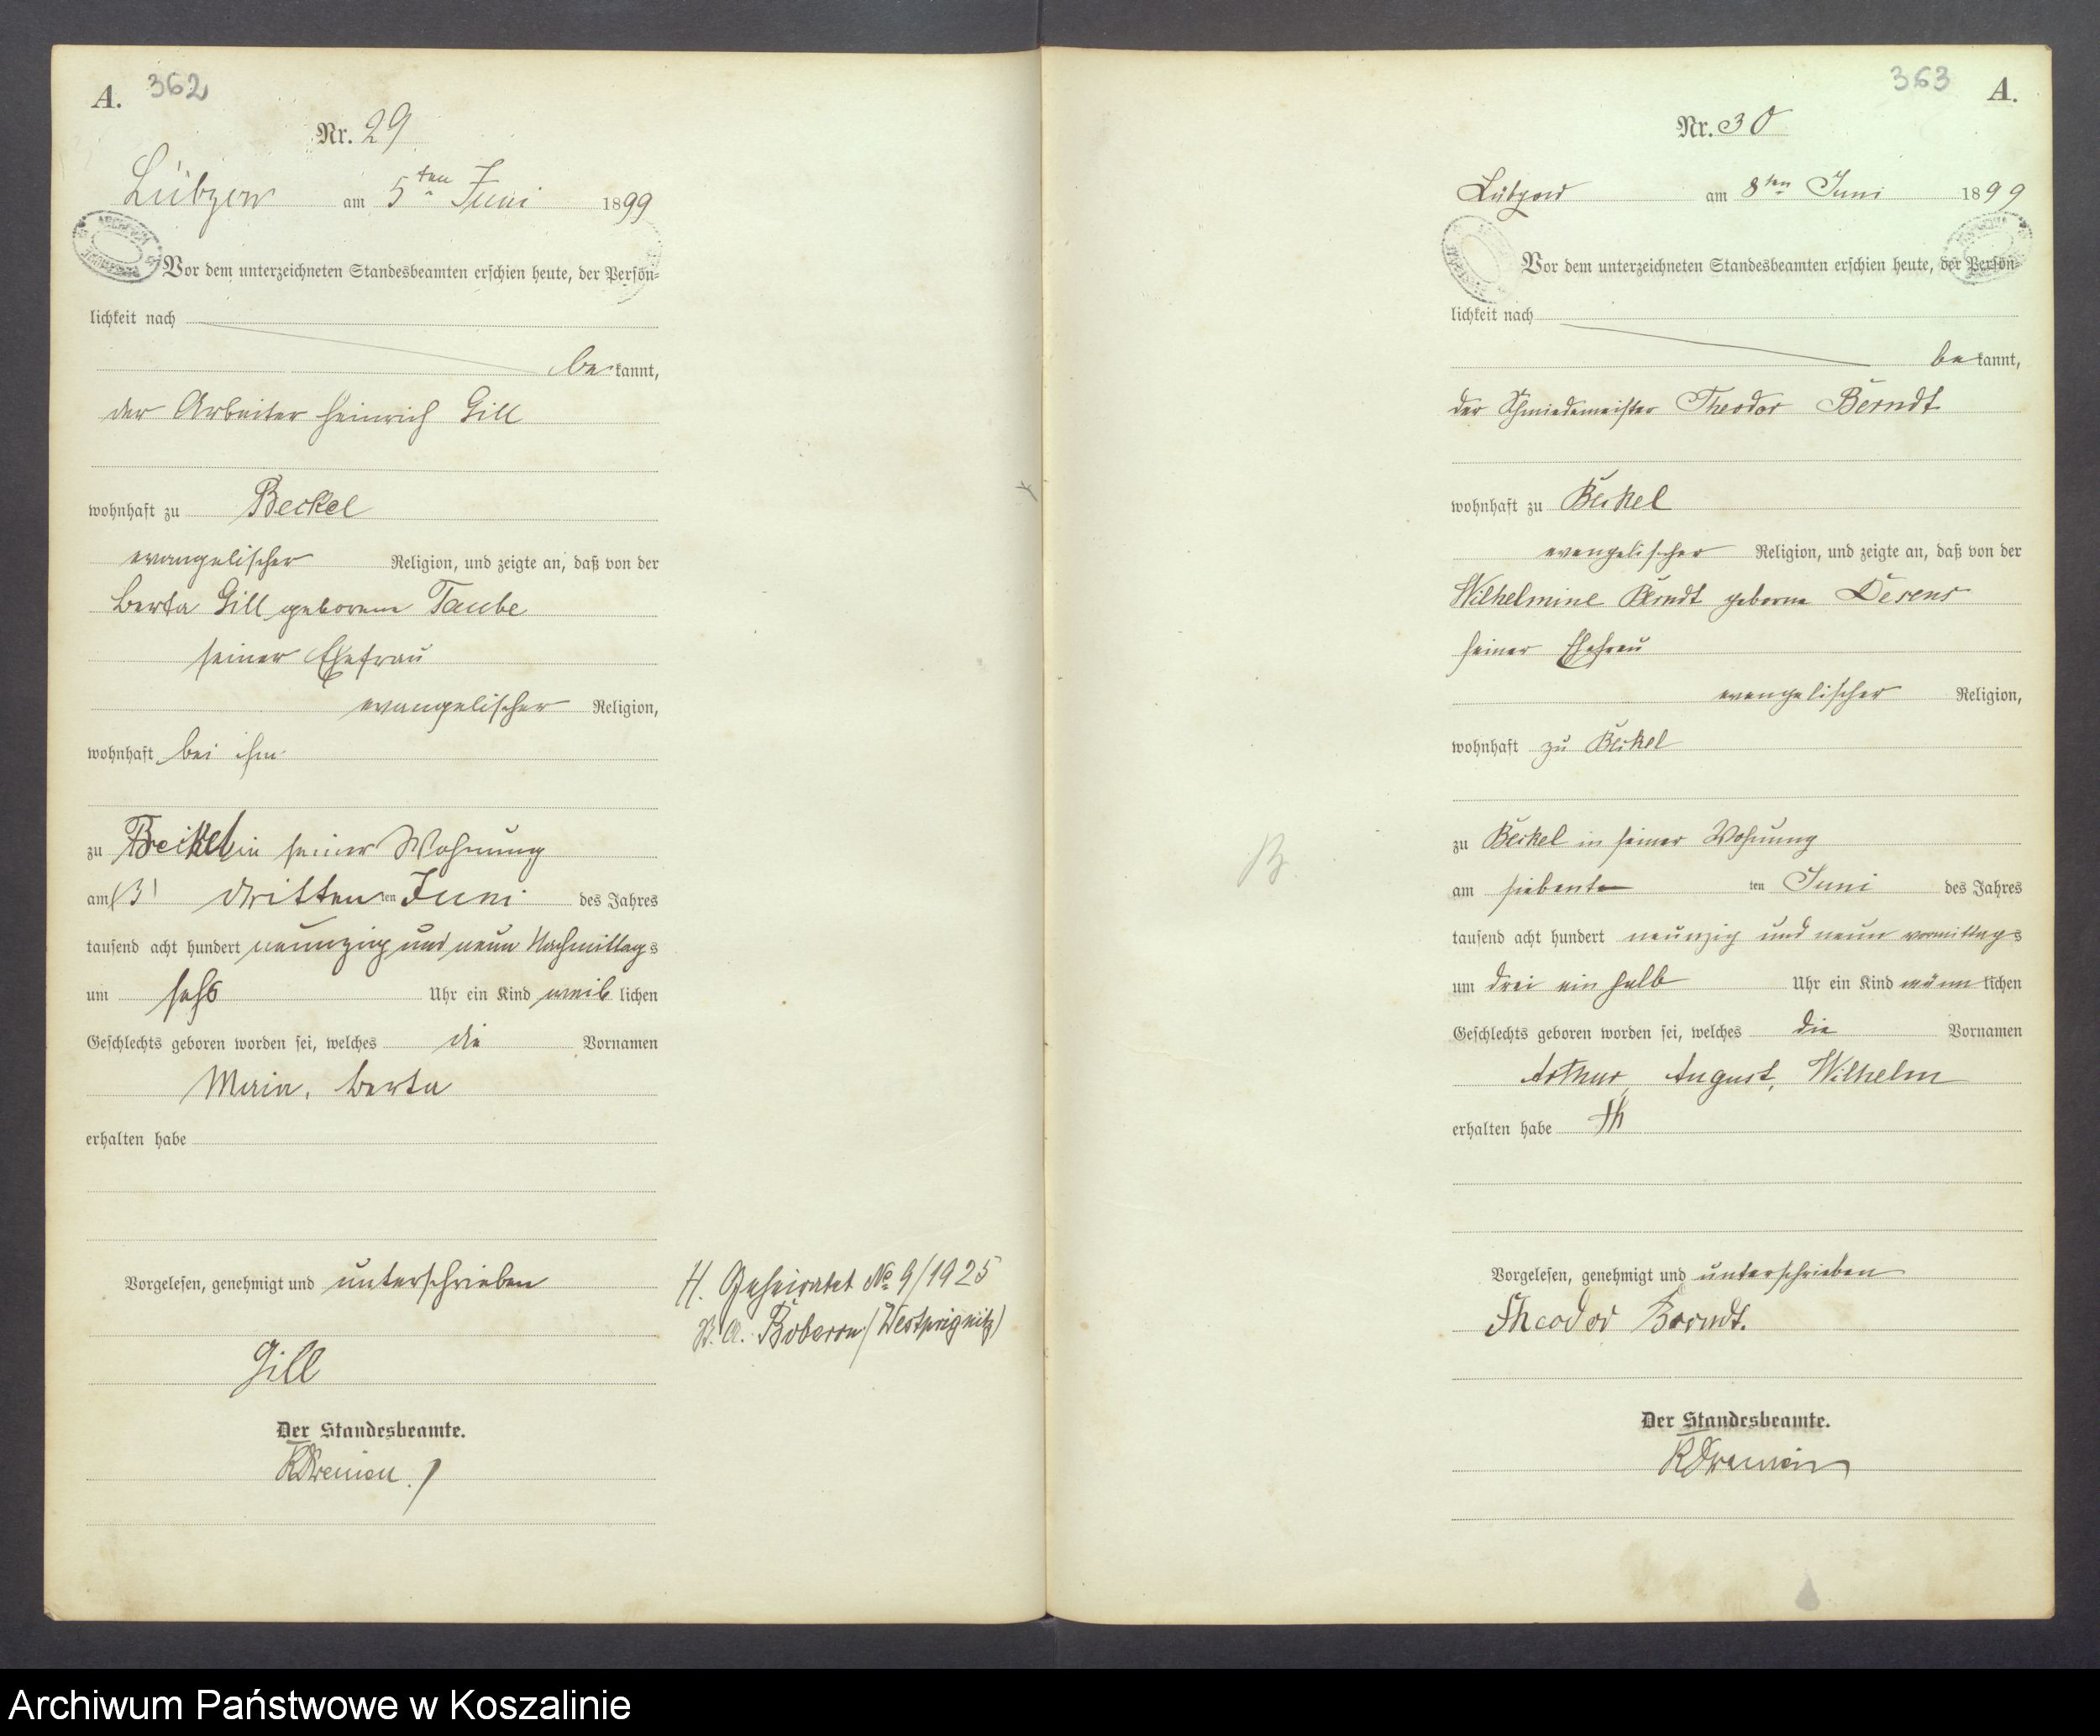 A. 362
Nr. 29
Lübzow am 5ten Juni 1899
Vor dem unterzeichneten Standesbeamten erschien heute, der Persön-
lichkeit nach
bekannt,
der Arbeiter Heinrich Gill
wohnhaft zu Beckel
evangelischer Religion, und zeigte an, daß von der
Berta Gill geborene Taube
seiner Ehefrau
evangelischer Religion,
wohnhaft bei ihm
zu Beckel in seiner Wohnung
am (3) dritten ten Juni des Jahres
tausend acht hundert neunzig und neun Nachmittags
um sechs Uhr ein Kind weiblichen
Geschlechts geboren worden sei, welches die Vornamen
Marie, Berta
erhalten habe
Vorgelesen, genehmigt und unterschrieben
Gill
Der Standesbeamte.
H. Geheiratet No 9/1925
(Westprignitz)
363 A.
Nr. 30
Lübzow am 8ten Juni 1899
Vor dem unterzeichneten Standesbeamten erschien heute, der Persön-
lichkeit nach
bekannt,
der Schmiedemeister Theodor Berndt
wohnhaft zu Beckel
evangelischer Religion, und zeigte an, daß von der
Wilhelmine Berndt geborne Desens
seiner Ehefrau
evangelischer Religion,
wohnhaft zu Beckel
zu Beckel in seiner Wohnung
am siebenten ten Juni des Jahres
tausend acht hundert neunzig und neun vormittags
um drei ein halb Uhr ein Kind männlichen
Geschlechts geboren worden sei, welches die Vornamen
Arthur, August, Wilhelm
erhalten habe
Vorgelesen, genehmigt und unterschrieben
Theodor Berndt.
Der Standesbeamte.
Archiwum Państwowe w Koszalinie